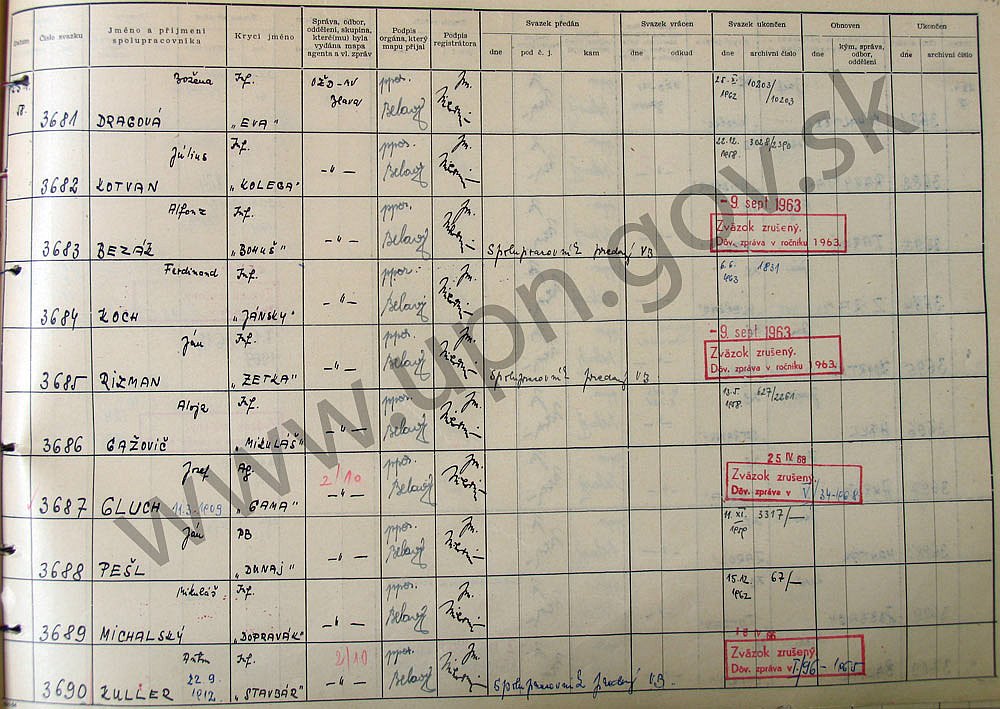 Datum
Číslo svazku
Jméno a příjmení
spolupracovníka
Krycí jméno
Správa, odbor,
oddělení, skupina,
které(mu) byla
vydána mapa
agenta a vl. zpráv
Podpis
orgána, který
mapu přijal
Podpis
registrátora
Svazek předán
dne
pod č. j.
kam
Svazek vrácen
dne
odkud
Svazek ukončen
dne
archivní číslo
Obnoven
dne
kým, správa,
odbor,
oddělení
Ukončen
dne
archivní číslo
3681 Božena
DRAGOVÁ
Inf.
"EVA"
OŽD-AV
Ilava
ppor.
Belavý
25. X.
1962
10203/10203
3682 Július
KOTVAN
Inf.
"KOLEGA"
- " -
ppor.
Belavý
22.12.
1958.
3028/2390
3683 Alfonz
BEZÁK
Inf.
"BOHUŠ"
- " -
ppor.
Belavý
Spolupracovník predaný VB
-9. sept 1963
Zväzok zrušený.
Dôv. zpráva v ročníku 1963.
3684 Ferdinand
KOCH
Inf.
"JÁNSKY"
- " -
ppor.
Belavý
6.6.
1963
1831
3685 Ján
RIZMAN
Inf.
"ZETKA"
- " -
ppor.
Belavý
Spolupracovník predaný VB
-9. sept 1963
Zväzok zrušený.
Dôv. zpráva v ročníku 1963.
3686 Alojz
GAŽOVIČ
Inf.
"MIKULÁŠ"
- " -
ppor.
Belavý
1958.
627/2261
3687 Jozef
GLUCH 11.3.1909
Ag.
"GAMA"
2/10
- " -
ppor.
Belavý
25 IV. 68
Zväzok zrušený.
Dôv. zpráva v V/34-1968
3688 Ján
PEŠL
PB
"DUNAJ"
- " -
ppor.
Belavý
11. XI.
3317/-
3689 Mikuláš
MICHALSKÝ
Inf.
"DOPRAVÁK"
- " -
ppor.
Belavý
15.12.
1962
67/-
3690
KULLER
22.9.
1912.
Inf.
"STAVBÁR"
2/10
- " -
ppor.
Belavý
Spolupracovník predaný VB.
Zväzok zrušený.
Dôv. zpráva v I/96-1965
www.upn.gov.sk